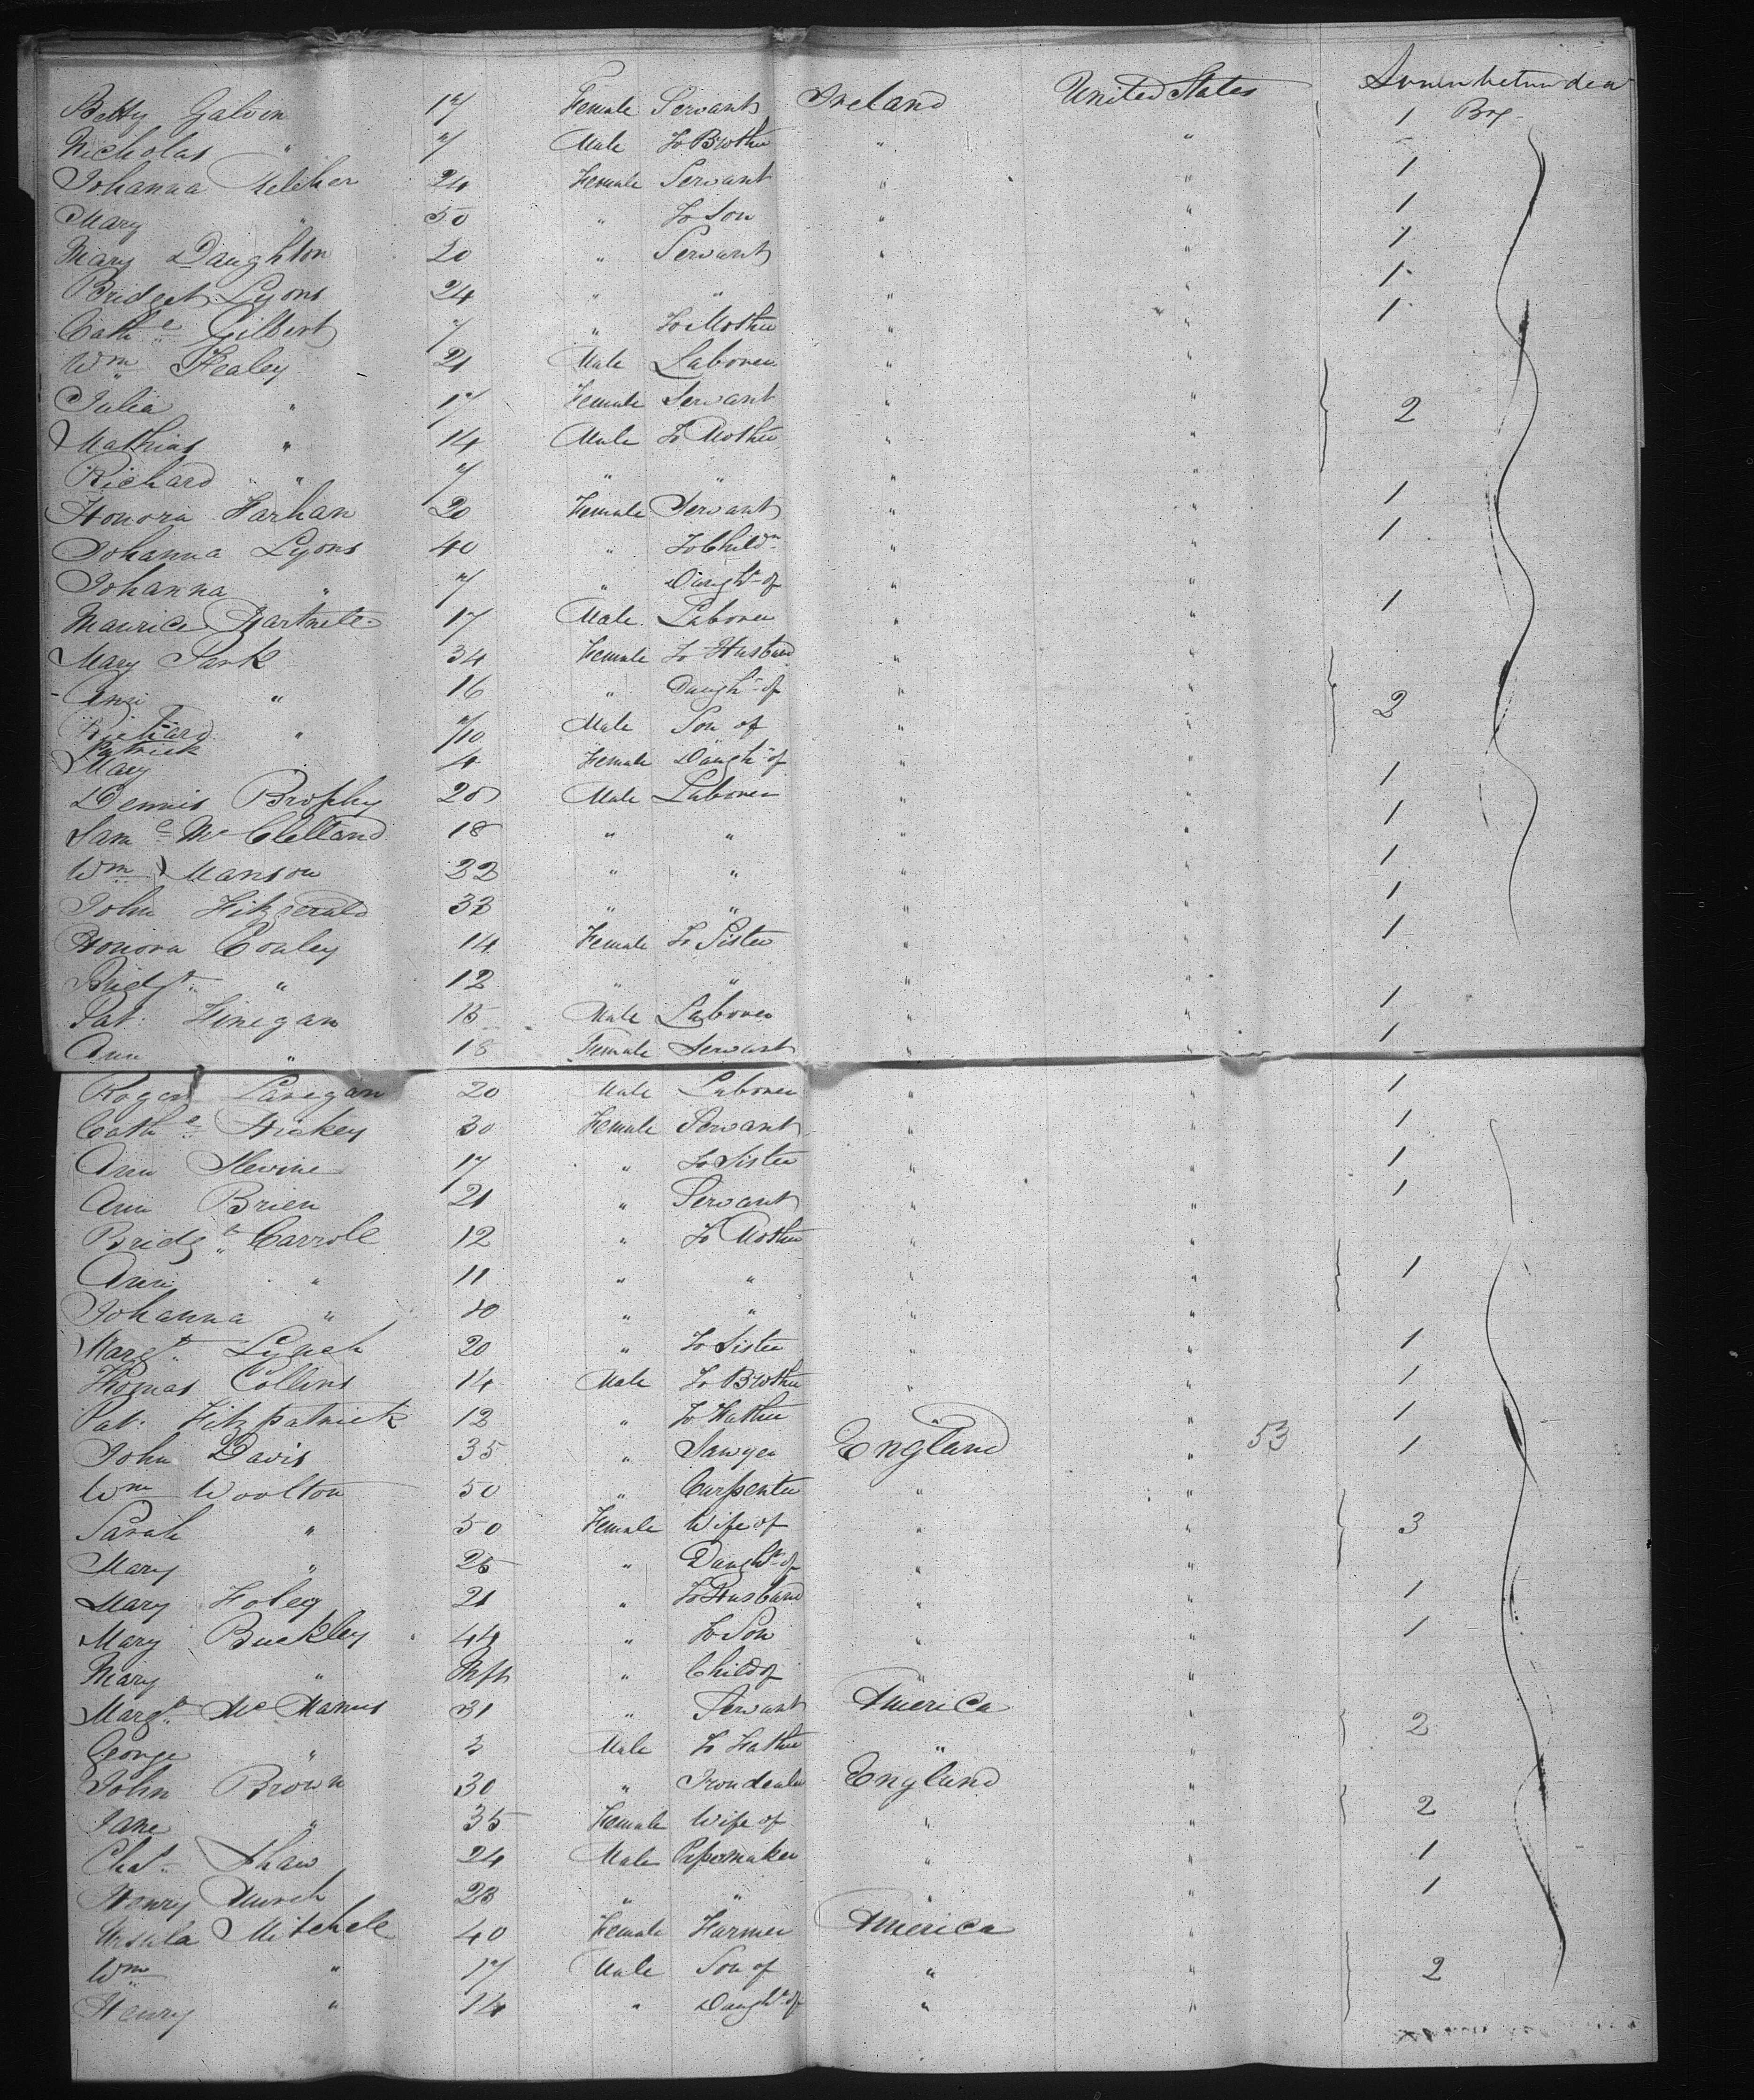 Betty Galvin 17 Female Servant Ireland United States 1 Box
Nicholas " 7 Male To Brother " "
Johanna Kelcher 24 Female Servant " " 1
Mary " 50 " To Son " " 1
Mary Daughton 20 " Servant " " 1
Bridget Lyons 24 " " " " 1
Cathe Gilbert 7 " To Mother " " 1
Wm Healey 21 Male Laborer " "
Julia " 17 Female Servant " " 2
Mathias " 14 Male To Mother " "
Richard " 7 " " " "
Honora Harhan 20 Female Servant " " 1
Johanna Lyons 40 " To Childn " " 1
Johanna " 7 " Daught of " "
Maurice Hartnett 17 Male Laborer " " 1
Mary Park 34 Female To Husband " "
Ann " 16 " Daught of " " 2
Richard
Patrick " 7/10 Male Son of " "
Mary 4 Female Daught of " "
Dennis Brophy 20 Male Laborer " " 1
Saml McClelland 18 " " " " 1
Wm Manson 32 " " " " 1
John Fitzgerald 33 " " " " 1
Honora Conley 14 Female To Sister " " 1
Bridgt " 12 " " " "
Pat. Finegan 15 Male Laborer " " 1
Ann " 18 Female Servant " " 1
Roger Lanegan 20 Male Laborer " " 1
Cathe Hickey 30 Female Servant " " 1
Ann Slevine 17 " To Sister " " 1
Ann Brien 21 " Servant " " 1
Bridgt Carroll 12 " To Mother " "
Ann " 11 " " " " 1
Johanna " 10 " " " "
Margt Lynch 20 " To Sister " " 1
Thomas Collins 14 Male To Brother " " 1
Pat. Fitzpatrick 12 " To Father " " 1
John Davis 35 " Sawyer England " 53 1
Wm Woolton 50 " Carpenter " "
Sarah " 50 Female Wife of " " 3
Mary " 25 " Daught of " "
Mary Foley 21 " To Husband " " 1
Mary Buckley 44 " To Son " " 1
Mary " Inft " Child of " "
Margt McManus 31 " Servant America "
George " 3 Male To Father " " 2
John Brown 30 " Irondealer England "
Jane " 35 Female Wife of " " 2
Chas Shaw 24 Male Papermaker " " 1
Henry 23 " " " " 1
Ursula Mitchell 40 Female Farmer America "
Wm " 17 Male Son of " " 2
Henry " 14 " Daught of " "